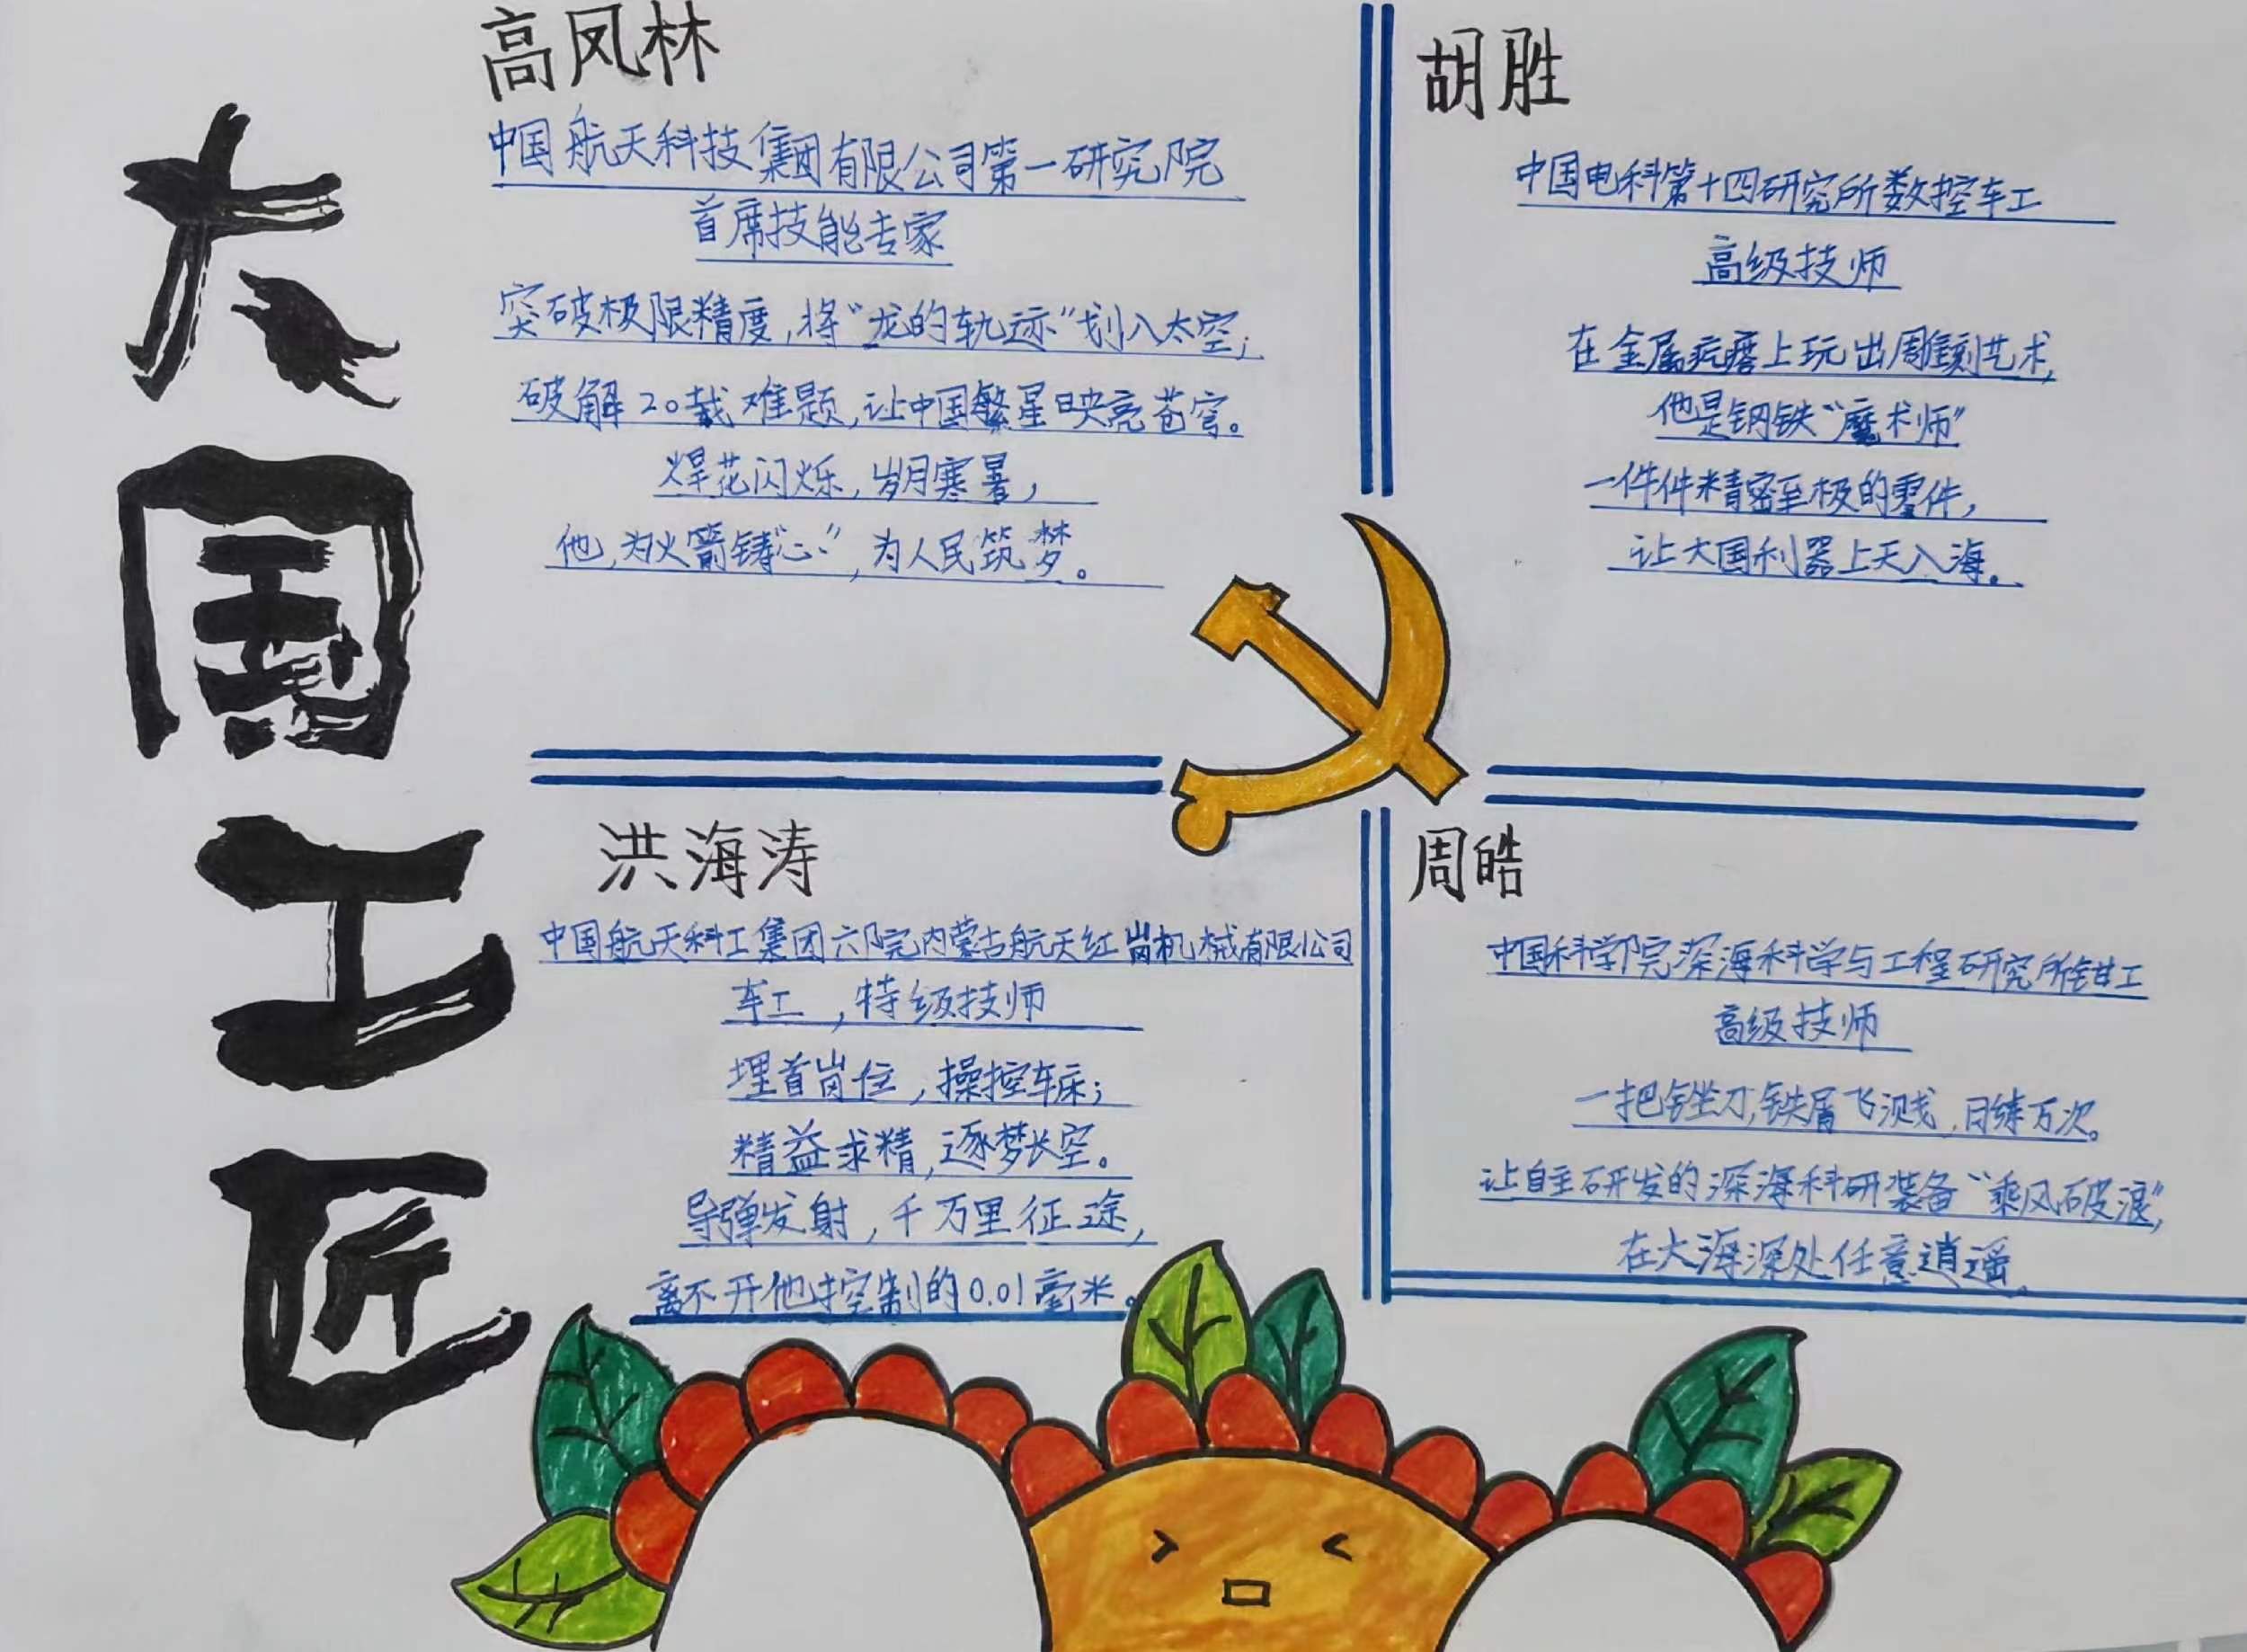 大国工匠
高凤林
中国航天科技集团有限公司第一研究院
首席技能专家
突破极限精度,将“龙的轨迹”划入太空;
破解20载难题,让中国繁星映亮苍穹。
焊花闪烁,岁月寒暑,
他,为火箭铸“心”,为人民筑梦。
胡胜
中国电科第十四研究所数控车工
高级技师
在金属疙瘩上玩出雕刻艺术,
他是钢铁“魔术师”
一件件精密至极的零件,
让大国利器上天入海。
洪海涛
中国航天科工集团六院内蒙古航天红岗机械有限公司
车工,特级技师
埋首岗位,操控车床;
精益求精,逐梦长空。
导弹发射,千万里征途,
离不开他控制的0.01毫米。
周皓
中国科学院深海科学与工程研究所钳工
高级技师
一把锉刀,铁屑飞溅,日练万次。
让自主研发的深海科研装备“乘风破浪”,
在大海深处任意逍遥。